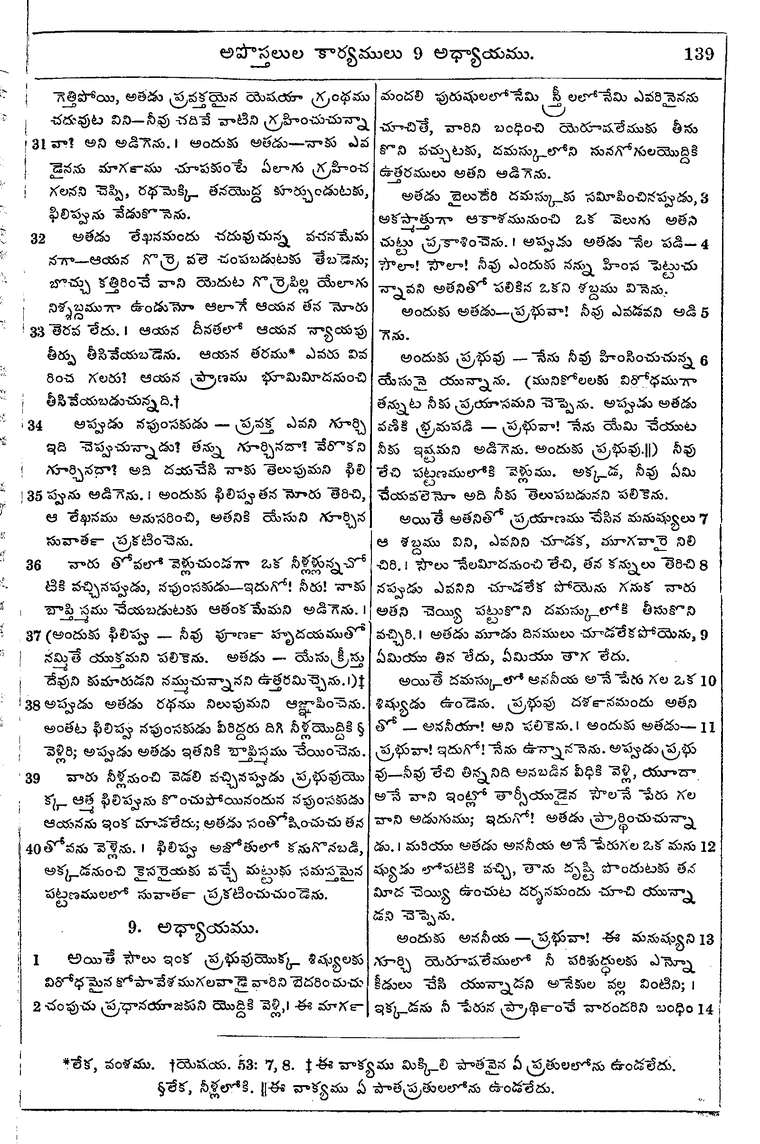 అపొస్తలుల కార్యములు 9 అధ్యాయము.
139
గెత్తిపోయి, అతడు ప్రవక్తయైన యెషయా గ్రంథము
చదువుట విని—నీవు చదివే వాటిని గ్రహించుచున్నా
31 వా? అని అడిగెను. । అందుకు అతడు—నాకు ఎవ
డైనను మార్గము చూపకుంటే ఏలాగు గ్రహించ
గలనని చెప్పి, రథమెక్కి తనయొద్ద కూర్చుండుటకు,
ఫిలిప్పును వేడుకొనెను.
32 అతడు లేఖనమందు చదువుచున్న వచనమేమ
నగా—ఆయన గొర్రె వలె చంపబడుటకు తేబడెను;
బొచ్చు కత్తిరించే వాని యెదుట గొర్రెపిల్ల యేలాగు
నిశ్శబ్దముగా ఉండునో ఆలాగే ఆయన తన నోరు
33 తెరవ లేదు. । ఆయన దీనతలో ఆయన న్యాయపు
తీర్పు తీసివేయబడెను. ఆయన తరము* ఎవరు వివ
రించ గలరు? ఆయన ప్రాణము భూమిమీదనుంచి
తీసివేయబడుచున్నది.†
34 అప్పుడు నపుంసకుడు — ప్రవక్త ఎవని గూర్చి
ఇది చెప్పుచున్నాడు? తన్ను గూర్చినదా? వేరొకని
గూర్చినదా? అది దయచేసి నాకు తెలుపుమని ఫిలి
35 ప్పును అడిగెను. । అందుకు ఫిలిప్పు తన నోరు తెరిచి,
ఆ లేఖనము అనుసరించి, అతనికి యేసుని గూర్చిన
సువార్త ప్రకటించెను.
36 వారు త్రోవలో వెళ్లుచుండగా ఒక నీళ్లున్నచో
టికి వచ్చినప్పుడు, నపుంసకుడు—ఇదుగో! నీరు! నాకు
బాప్తిస్మము చేయబడుటకు ఆతంకమేమని అడిగెను. ।
37 (అందుకు ఫిలిప్పు — నీవు పూర్ణ హృదయముతో
నమ్మితే యుక్తమని పలికెను. అతడు — యేసు క్రీస్తు
దేవుని కుమారుడని నమ్ముచున్నానని ఉత్తరమిచ్చెను.।)‡
38 అప్పుడు అతడు రథము నిలుపుమని ఆజ్ఞాపించెను.
అంతట ఫిలిప్పు నపుంసకుడు వీరిద్దరు దిగి నీళ్లయొద్దికి §
వెళ్లిరి; అప్పుడు అతడు ఇతనికి బాప్తిస్మము చేయించెను.
39 వారు నీళ్లనుంచి వెడలి వచ్చినప్పుడు ప్రభువుయొ
క్క ఆత్మ ఫిలిప్పును కొంచుపోయినందున నపుంసకుడు
ఆయనను ఇంక చూడలేదు; అతడు సంతోషించుచు తన
40 త్రోవను వెళ్లెను. । ఫిలిప్పు అజోతులో కనుగొనబడి,
అక్కడనుంచి కైసరైయకు వచ్చే మట్టుకు సమస్తమైన
పట్టణములలో సువార్త ప్రకటించుచుండెను.
9. అధ్యాయము.
1 అయితే సౌలు ఇంక ప్రభువుయొక్క శిష్యులకు
విరోధమైన కోపావేశముగలవాడై వారిని బెదరించుచు
2 చంపుచు ప్రధానయాజకుని యొద్దికి వెళ్లి,। ఈ మార్గ
మందలి పురుషులలోనేమి స్త్రీలలోనేమి ఎవరినైనను
చూచితే, వారిని బంధించి యెరూషలేముకు తీసు
కొని వచ్చుటకు, దమస్కులోని సునగోగులయొద్దికి
ఉత్తరములు అతని అడిగెను.
అతడు బైలుదేరి దమస్కుకు సమీపించినప్పుడు, 3
అకస్మాత్తుగా ఆకాశమునుంచి ఒక వెలుగు అతని
చుట్టు ప్రకాశించెను. । అప్పుడు అతడు నేల పడి— 4
సౌలా! సౌలా! నీవు ఎందుకు నన్ను హింస పెట్టుచు
న్నావని అతనితో పలికిన ఒకని శబ్దము వినెను.
అందుకు అతడు—ప్రభువా! నీవు ఎవడవని అడి 5
గెను.
అందుకు ప్రభువు — నేను నీవు హింసించుచున్న 6
యేసునై యున్నాను. (మునికోలలకు విరోధముగా
తన్నుట నీకు ప్రయాసమని చెప్పెను. అప్పుడు అతడు
వణికి భ్రమపడి — ప్రభువా! నేను యేమి చేయుట
నీకు ఇష్టమని అడిగెను. అందుకు ప్రభువు.‖) నీవు
లేచి పట్టణములోకి వెళ్లుము. అక్కడ, నీవు ఏమి
చేయవలెనో అది నీకు తెలుపబడునని పలికెను.
అయితే అతనితో ప్రయాణము చేసిన మనుష్యులు 7
ఆ శబ్దము విని, ఎవనిని చూడక, మూగవారై నిలి
చిరి. । సౌలు నేలమీదనుంచి లేచి, తన కన్నులు తెరిచి 8
నప్పుడు ఎవనిని చూడలేక పోయెను గనుక వారు
అతని చెయ్యి పట్టుకొని దమస్కులోకి తీసుకొని
వచ్చిరి. । అతడు మూడు దినములు చూడలేకపోయెను, 9
ఏమియు తిన లేదు, ఏమియు తాగ లేదు.
అయితే దమస్కులో అననీయ అనే పేరు గల ఒక 10
శిష్యుడు ఉండెను. ప్రభువు దర్శనమందు అతని
తో — అననీయా! అని పలికెను. । అందుకు అతడు— 11
ప్రభువా! ఇదుగో! నేను ఉన్నాననెను. అప్పుడు ప్రభు
వు—నీవు లేచి తిన్ననిది అనబడిన వీధికి వెళ్లి, యూదా
అనే వాని ఇంట్లో తార్సీయుడైన సౌలనే పేరు గల
వాని అడుగుము; ఇదుగో! అతడు ప్రార్థించుచున్నా
డు. । మరియు అతడు అననీయ అనే పేరుగల ఒక మను 12
ష్యుడు లోపటికి వచ్చి, తాను దృష్టి పొందుటకు తన
మీద చెయ్యి ఉంచుట దర్శనమందు చూచి యున్నా
డని చెప్పెను.
అందుకు అననీయ —ప్రభువా! ఈ మనుష్యుని 13
గూర్చి యెరూషలేములో నీ పరిశుద్ధులకు ఎన్నో
కీడులు చేసి యున్నాడని అనేకుల వల్ల వింటిని; ।
ఇక్కడను నీ పేరున ప్రార్థించే వారందరిని బంధిం 14
*లేక, వంశము. †యెషయ. 53: 7, 8. ‡ఈ వాక్యము మిక్కిలి పాతవైన ఏ ప్రతులలోను ఉండలేదు.
§లేక, నీళ్లలోకి. ‖ఈ వాక్యము ఏ పాత ప్రతులలోను ఉండలేదు.